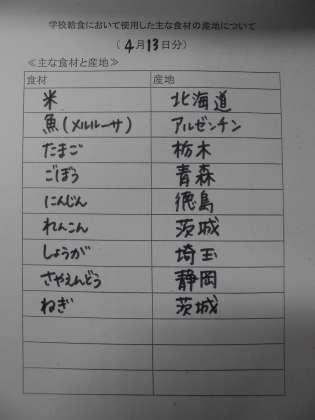 学校給食において使用した主な食材の産地について
(4月13日分)
≪主な食材と産地≫
食材 産地
米 北海道
魚(メルルーサ) アルゼンチン
たまご 栃木
ごぼう 青森
にんじん 徳島
れんこん 茨城
しょうが 埼玉
さやえんどう 静岡
ねぎ 茨城